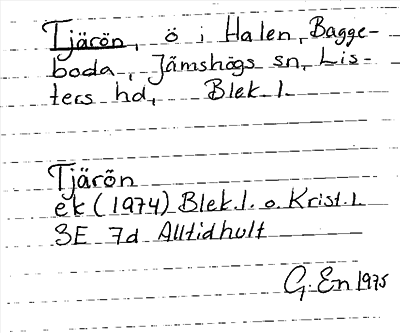 Tjärön, ö i Halen, Bagge-
boda, Jämshögs sn, Lis-
ters hd, Blek. l.
Tjärön
ek (1974) Blek. l. o. Krist. l.
3E 7d Alltidhult
G. En 1975